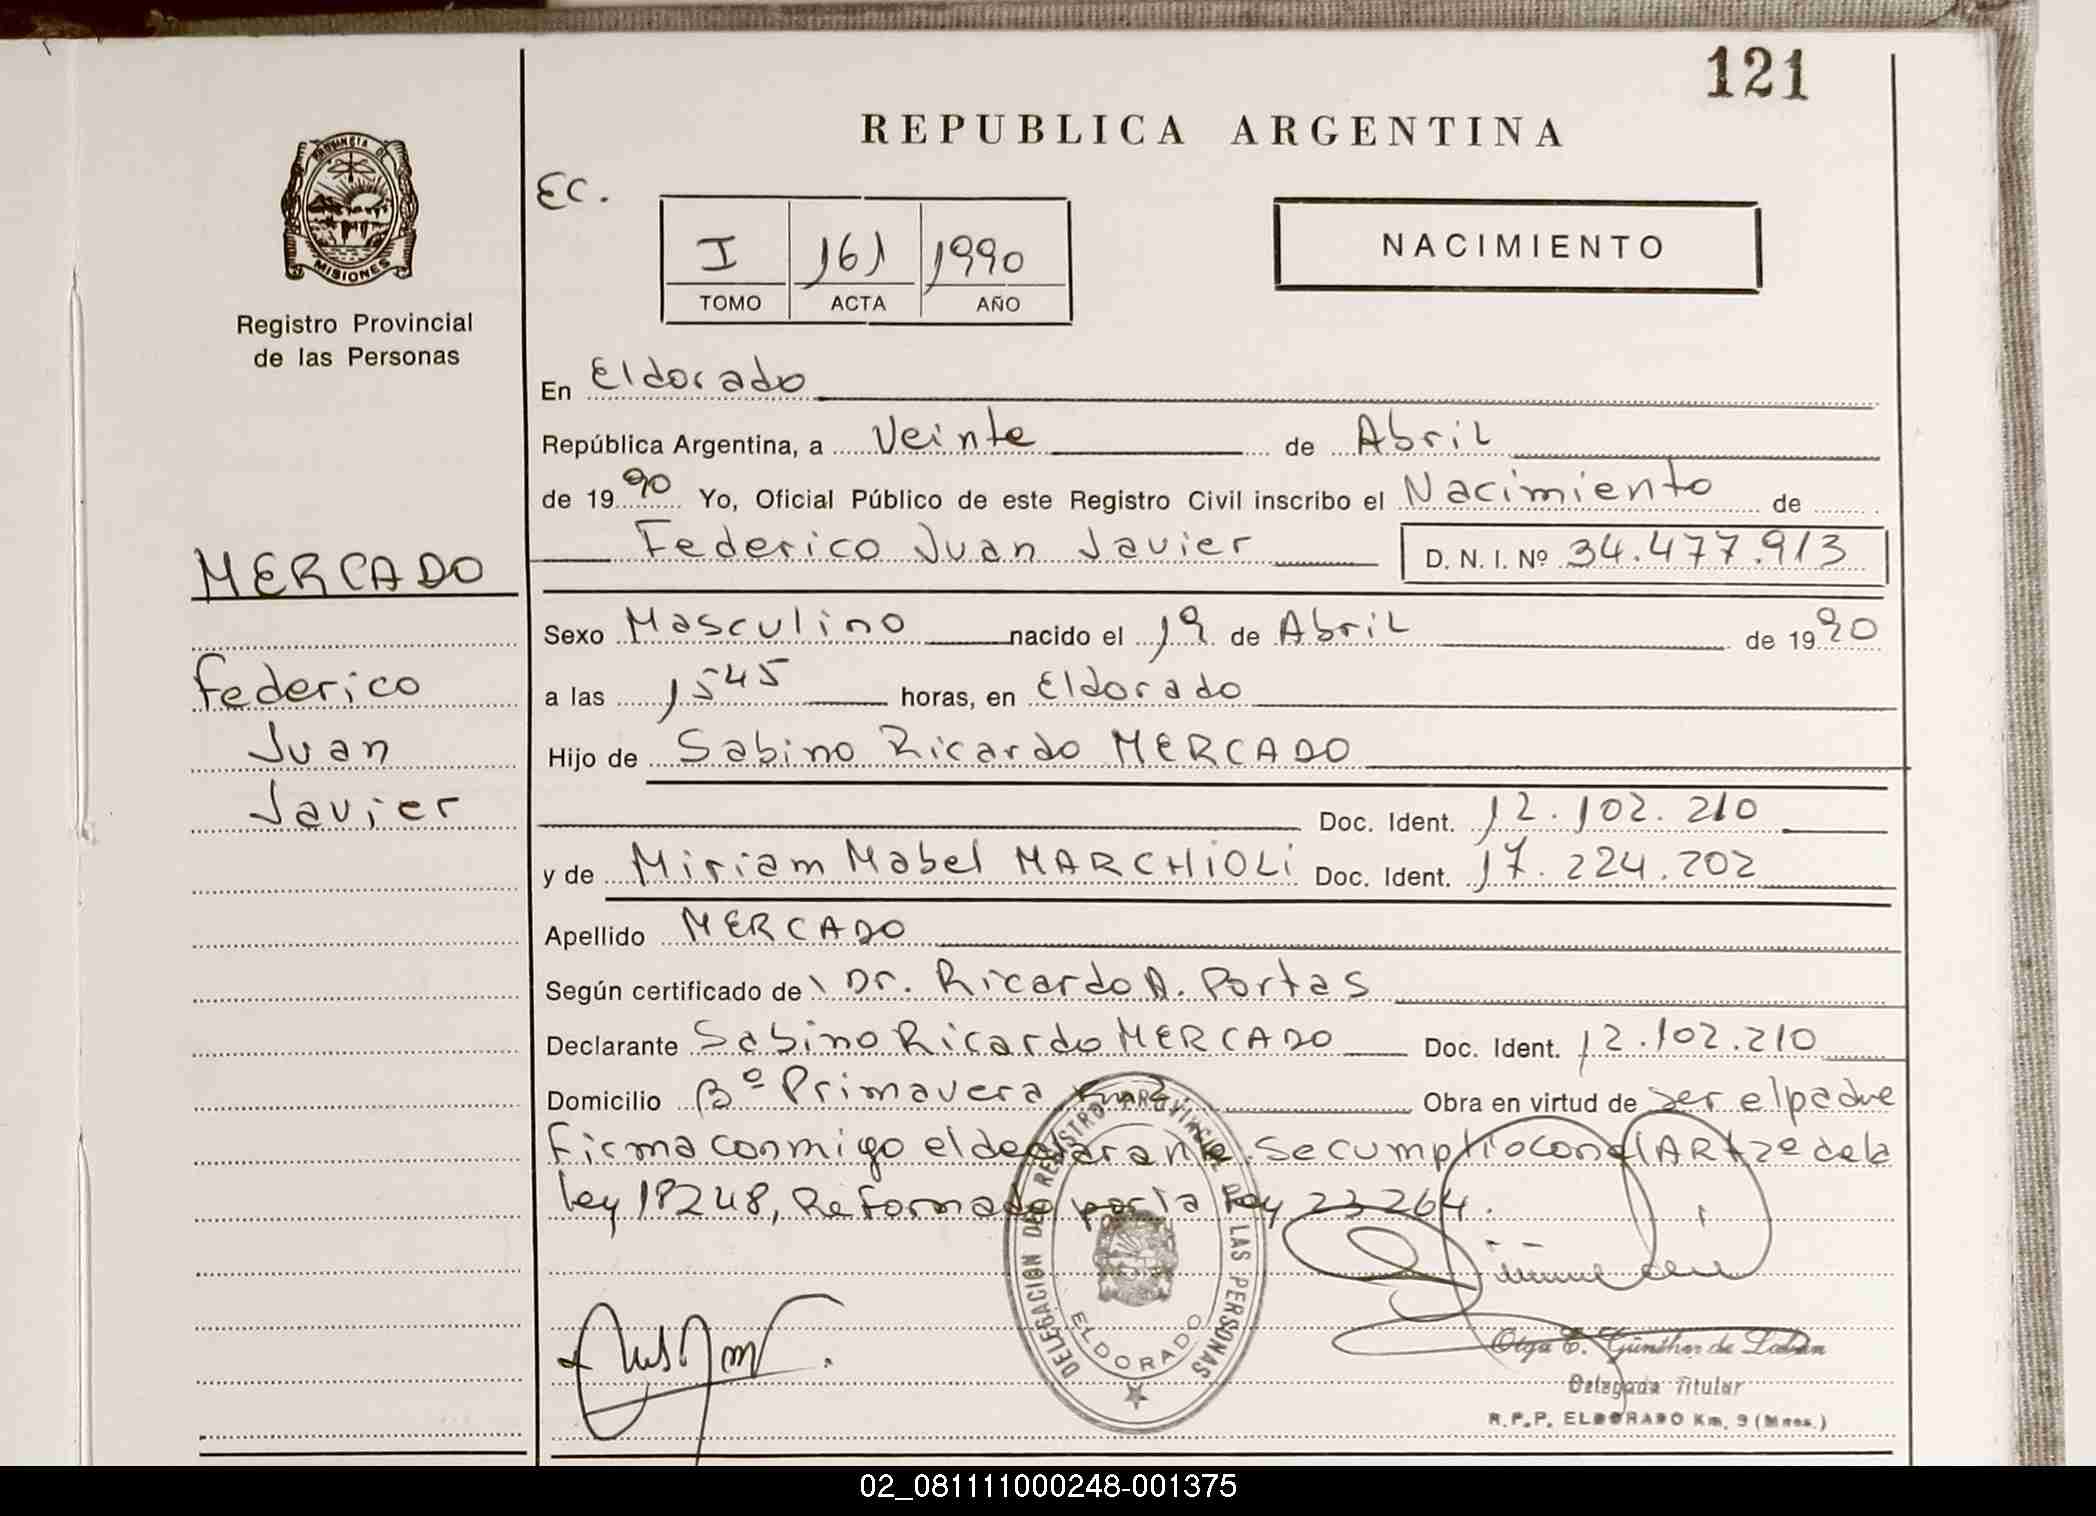 121
REPUBLICA ARGENTINA
PROVINCIA DE
MISIONES
Registro Provincial
de las Personas
EC.
I 161 1990
TOMO ACTA AÑO
NACIMIENTO
En Eldorado
República Argentina, a Veinte de Abril
de 1990 Yo, Oficial Público de este Registro Civil inscribo el Nacimiento de
Federico Juan Javier D. N. I. Nº 34.477.913
MERCADO
Federico
Juan
Javier
Sexo Masculino nacido el 19 de Abril de 1990
a las 1545 horas, en Eldorado
Hijo de Sabino Ricardo MERCADO
Doc. Ident. 12.102.210
y de Miriam Mabel MARCHIOLI Doc. Ident. 17.224.202
Apellido MERCADO
Según certificado de Dr. Ricardo A. Portas
Declarante Sabino Ricardo MERCADO Doc. Ident. 12.102.210
Domicilio Bº Primavera Obra en virtud de ser el padre
Firma conmigo el declarante. Se cumplio con el ARt 2º de la
ley 18248, Reformado por la ley 23264.
DELEGACION DEL REGISTRO PROVINCIAL DE LAS PERSONAS
ELDORADO
Olga E. Günther de
Delegada Titular
R.P.P. ELDORADO Km. 9 (Mnes.)
02_081111000248-001375